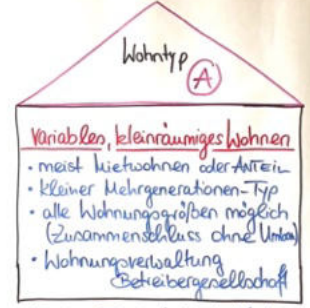 Wohntyp
A
variables, kleinräumiges Wohnen
• meist Mietwohnen oder ANTEIL
• kleiner Mehrgenerationen-Typ
• alle Wohnungsgrößen möglich
(Zusammenschluss ohne Umbau)
• Wohnungsverwaltung
Betreibergesellschaft